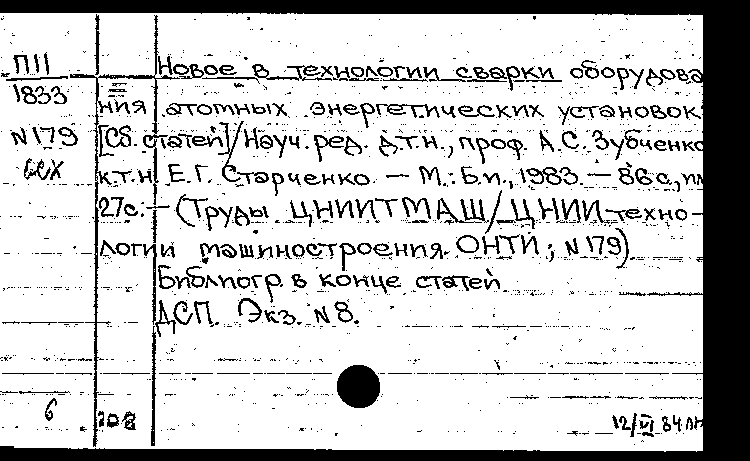 П11
1833
N179
Новое в технологии сварки оборудова
ния атомных энергетических установок:
[Сб. статей]/Науч. ред. д.т.н., проф. А.С. Зубченко
к.т.н. Е.Г. Старченко. — М.: Б.и., 1983. — 86с., ил
27с. — (Труды ЦНИИТМАШ/ЦНИИ техно-
логии машиностроения. ОНТИ; N179)
Библиогр. в конце статей
ДСП. Экз. N8.
6
12/VI 84